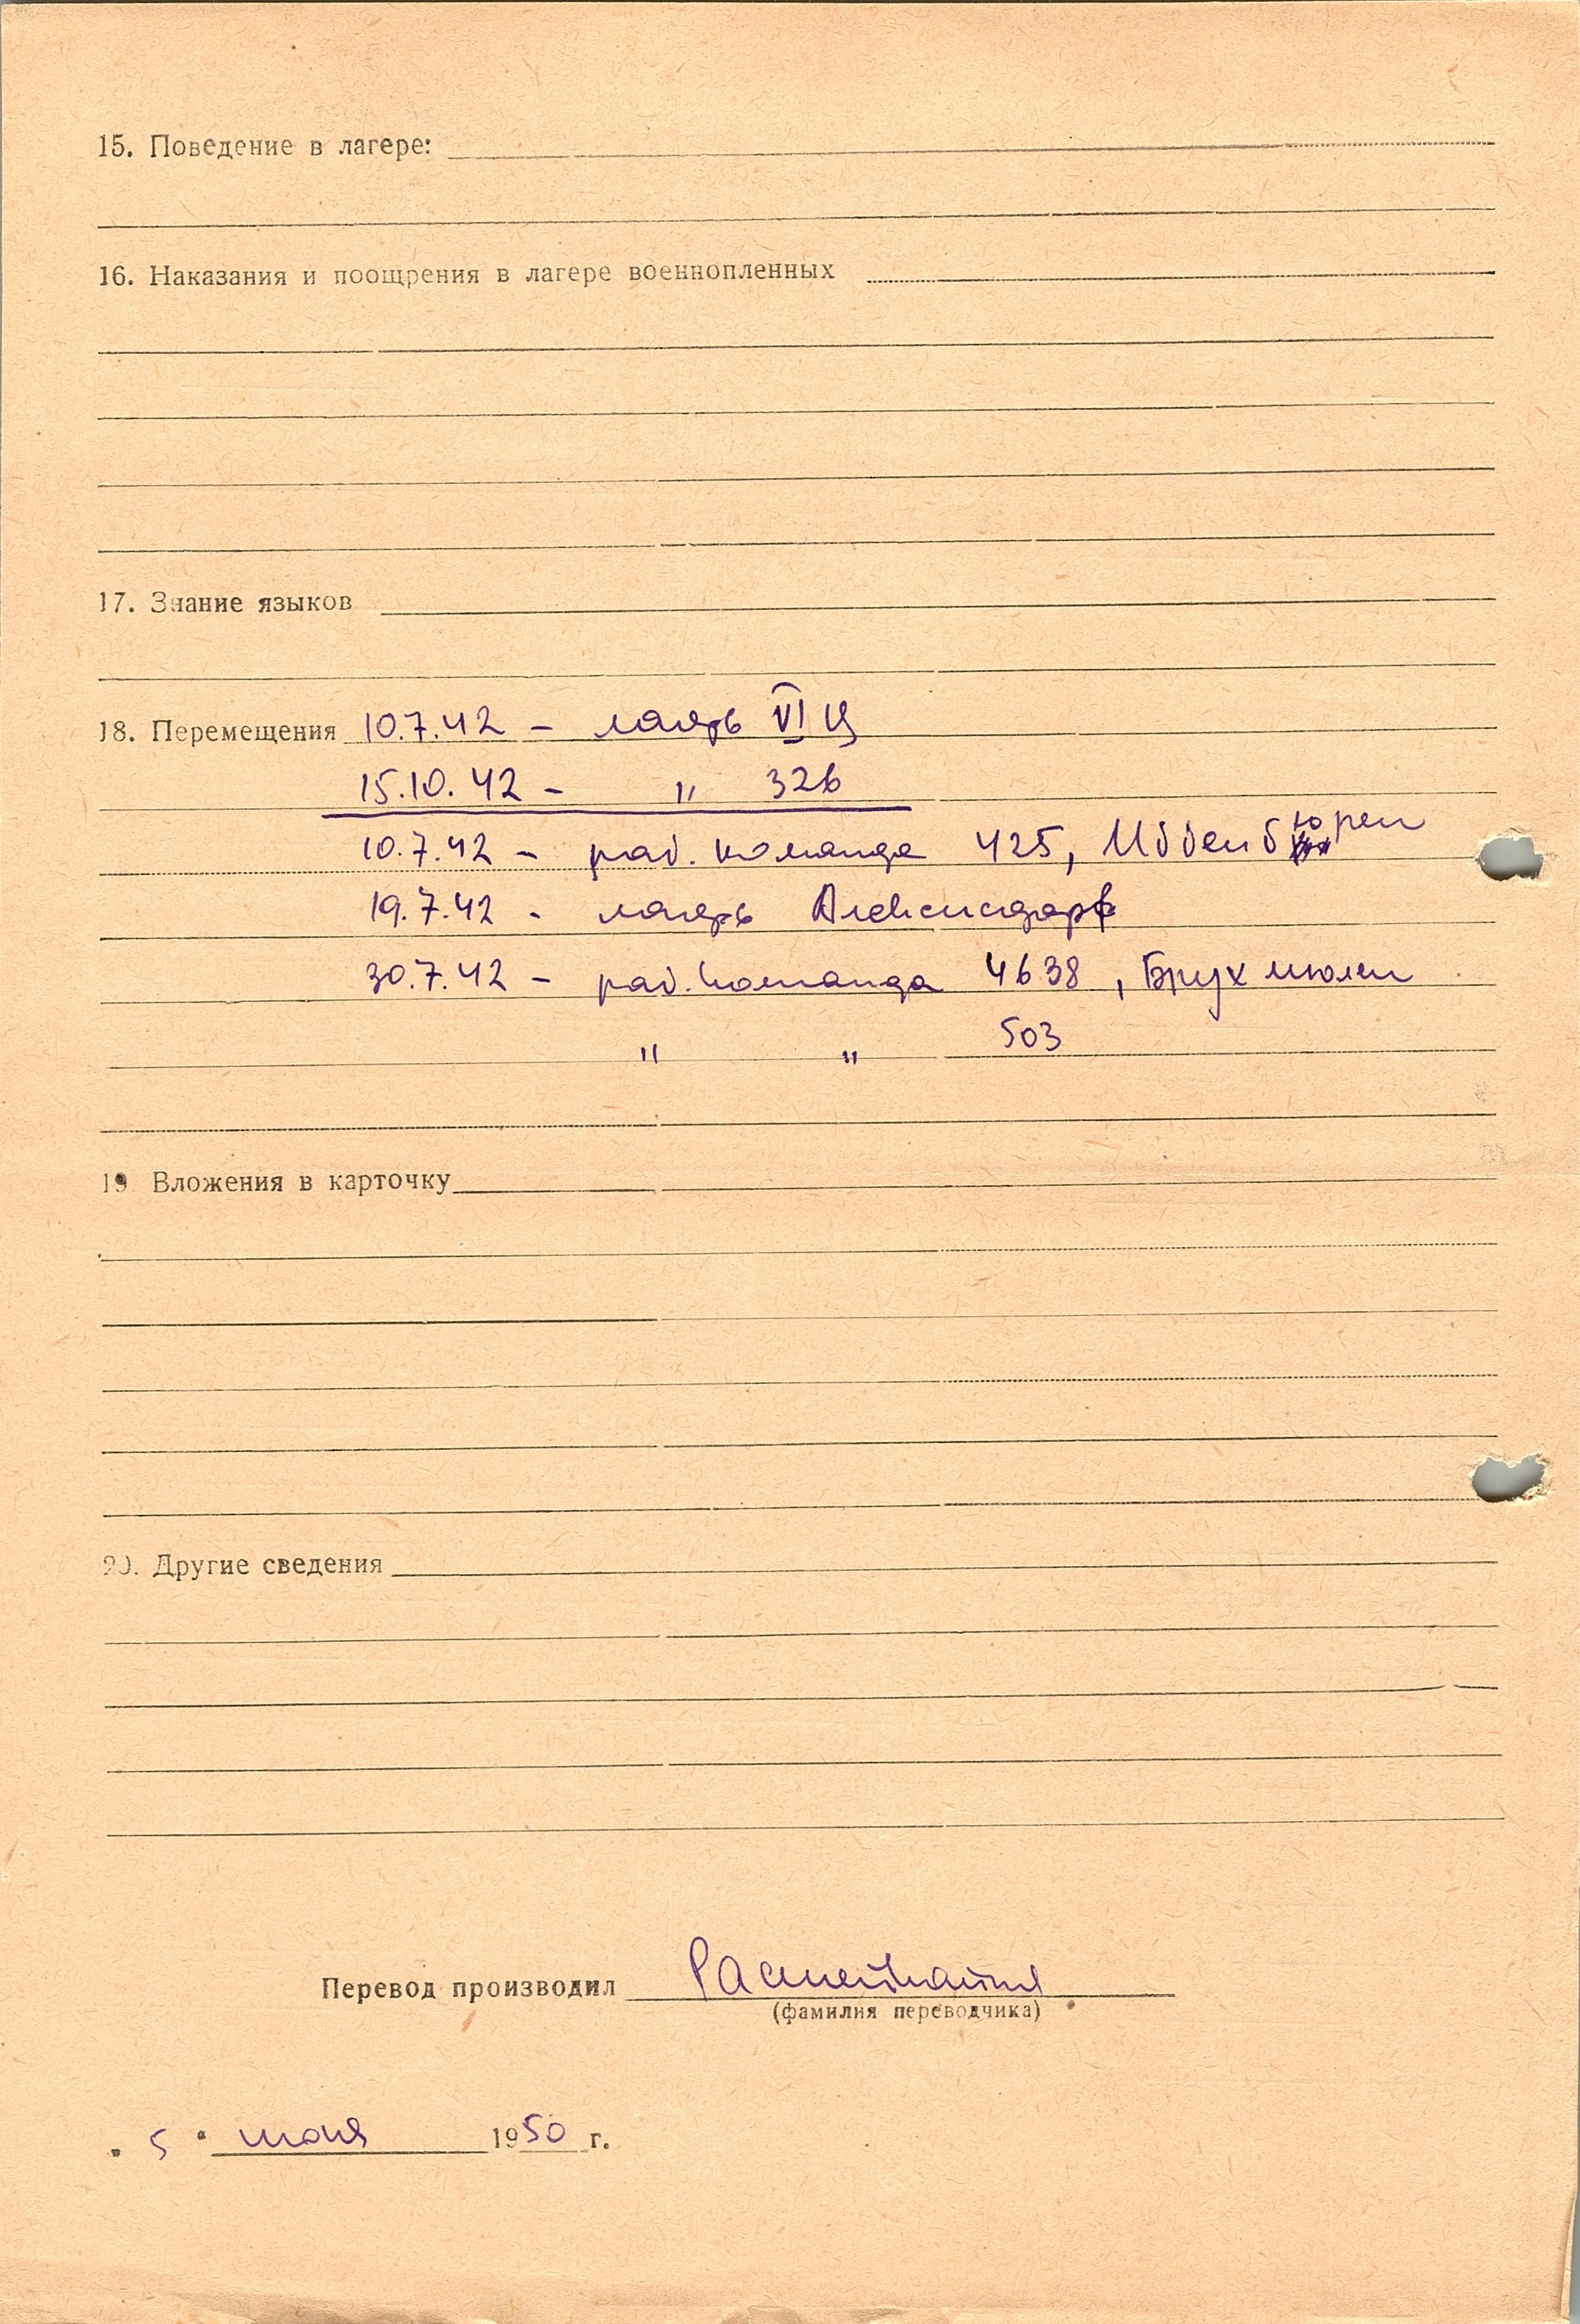 15. Поведение в лагере:
16. Наказания и поощрения в лагере военнопленных
17. Знание языков
18. Перемещения 10.7.42 – лагерь VI Ц
15.10.42 – " 326
10.7.42 – раб. команда 425, Иббенбюрен
19.7.42 - лагерь Алексисдорф
30.7.42 – раб. команда 4638, Брухмюлен
" " 503
19 Вложения в карточку
20. Другие сведения
Перевод производил
(фамилия переводчика)
"5" июня 1950 г.